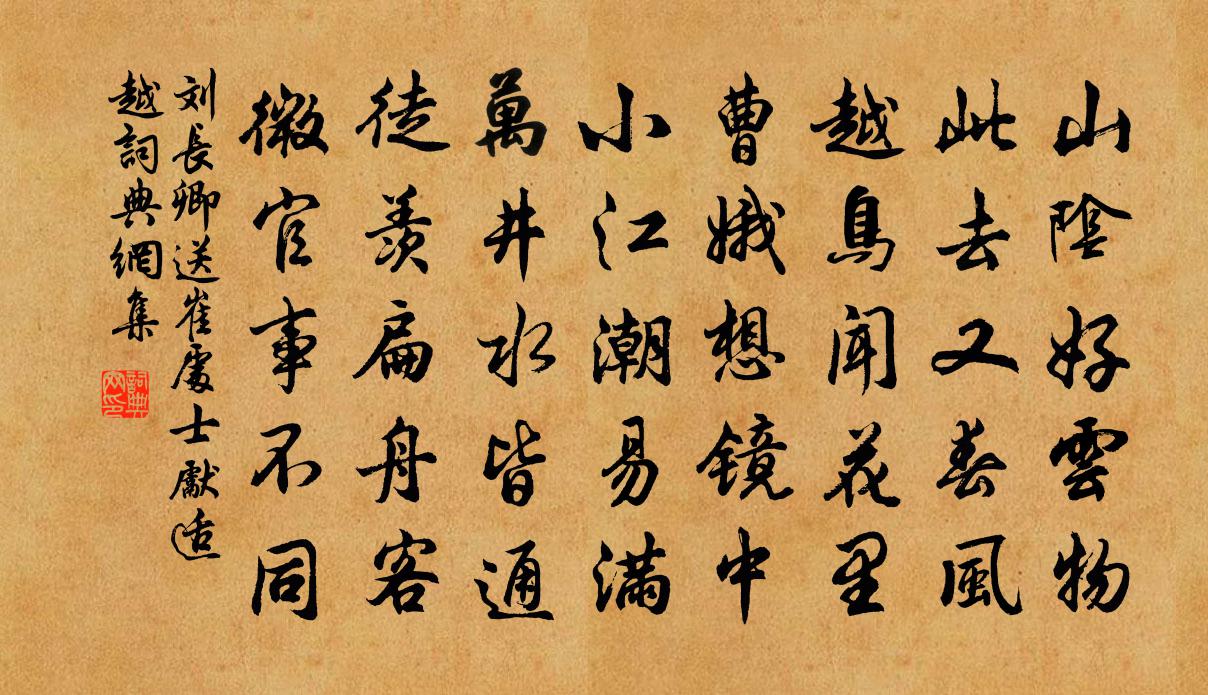 山陰好雲物
此去又春風
越鳥聞花里
曹娥想镜中
小江潮易滿
萬井水皆通
徒羨扁舟客
微官事不同
刘長卿送崔處士獻适
越詞典網集
詞典
网印